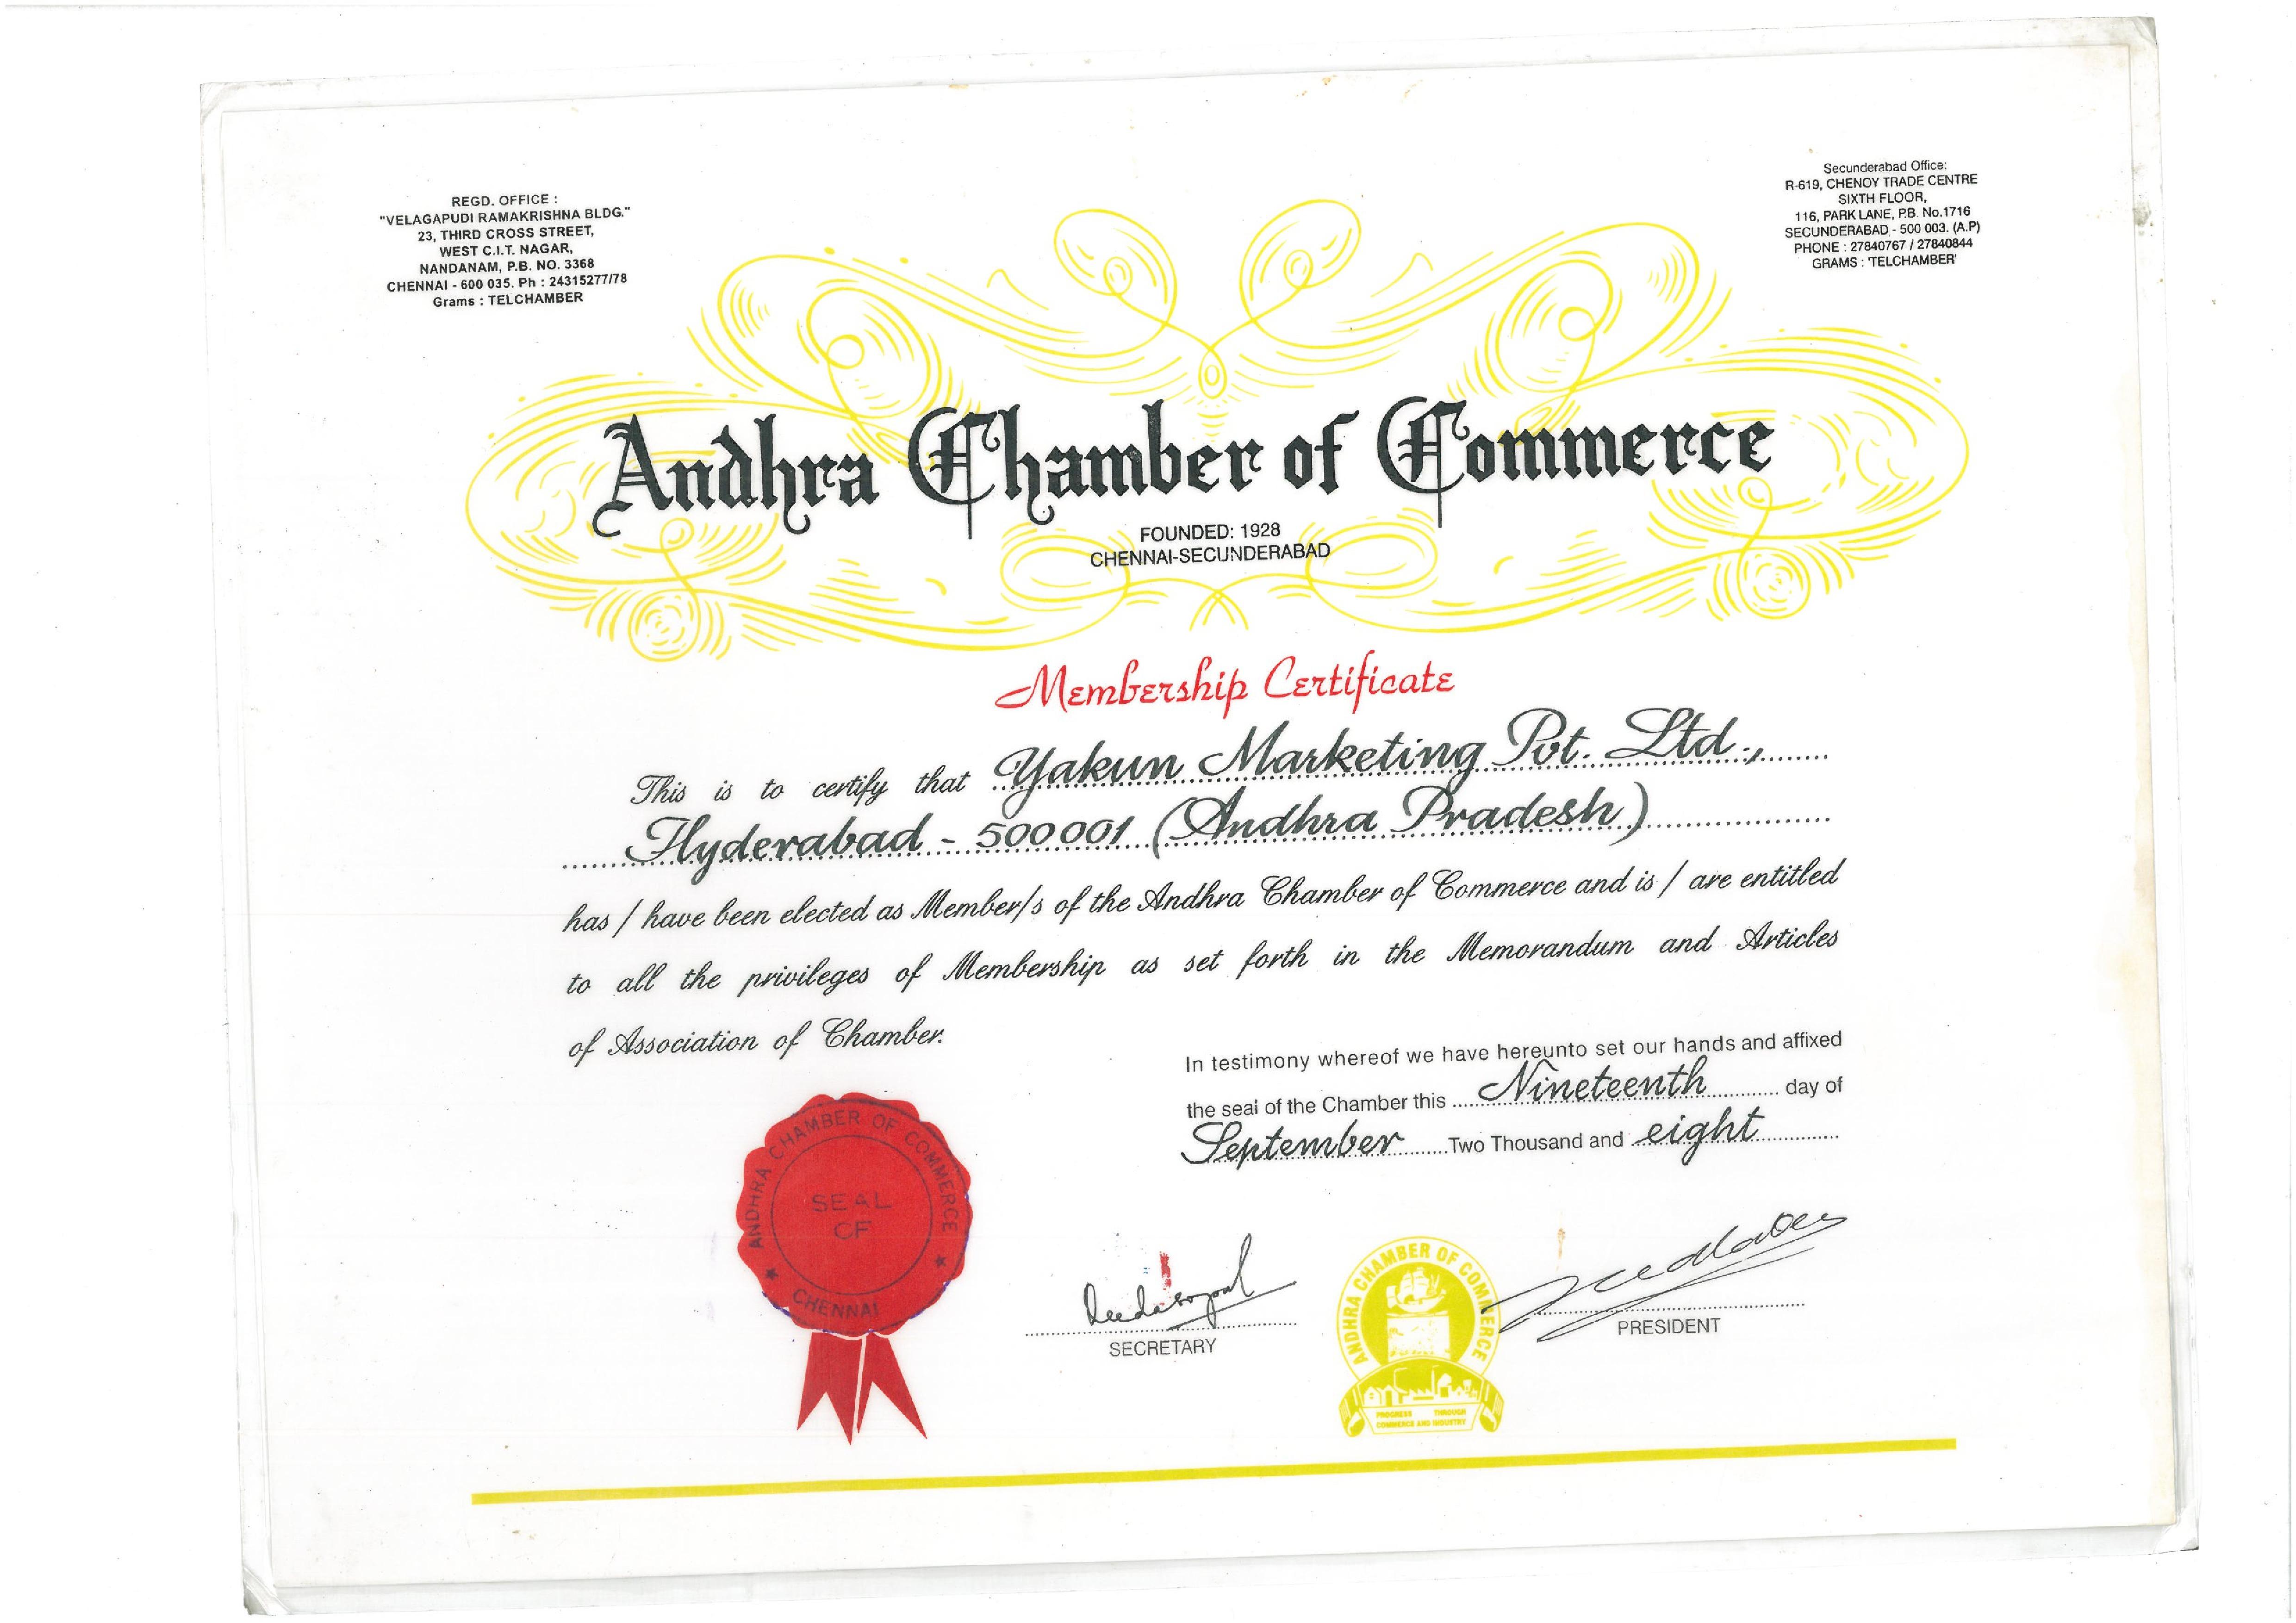 REGD. OFFICE :
"VELAGAPUDI RAMAKRISHNA BLDG."
23, THIRD CROSS STREET,
WEST C.I.T. NAGAR,
NANDANAM, P.B. NO. 3368
CHENNAI - 600 035. Ph : 24315277/78
Grams : TELCHAMBER
Secunderabad Office:
R-619, CHENOY TRADE CENTRE
SIXTH FLOOR,
116, PARK LANE, P.B. No.1716
SECUNDERABAD - 500 003. (A.P)
PHONE : 27840767 / 27840844
GRAMS : 'TELCHAMBER'
Andhra Chamber of Commerce
FOUNDED: 1928
CHENNAI-SECUNDERABAD
Membership Certificate
This is to certify that Yakun Marketing Pvt. Ltd.,
Hyderabad - 500001 (Andhra Pradesh)
has / have been elected as Member/s of the Andhra Chamber of Commerce and is / are entitled
to all the privileges of Membership as set forth in the Memorandum and Articles
of Association of Chamber.
In testimony whereof we have hereunto set our hands and affixed
the seal of the Chamber this Nineteenth day of
September Two Thousand and eight
ANDHRA CHAMBER OF COMMERCE
SEAL
OF
★ CHENNAI ★
SECRETARY
ANDHRA CHAMBER OF COMMERCE
PROGRESS THROUGH
COMMERCE AND INDUSTRY
PRESIDENT